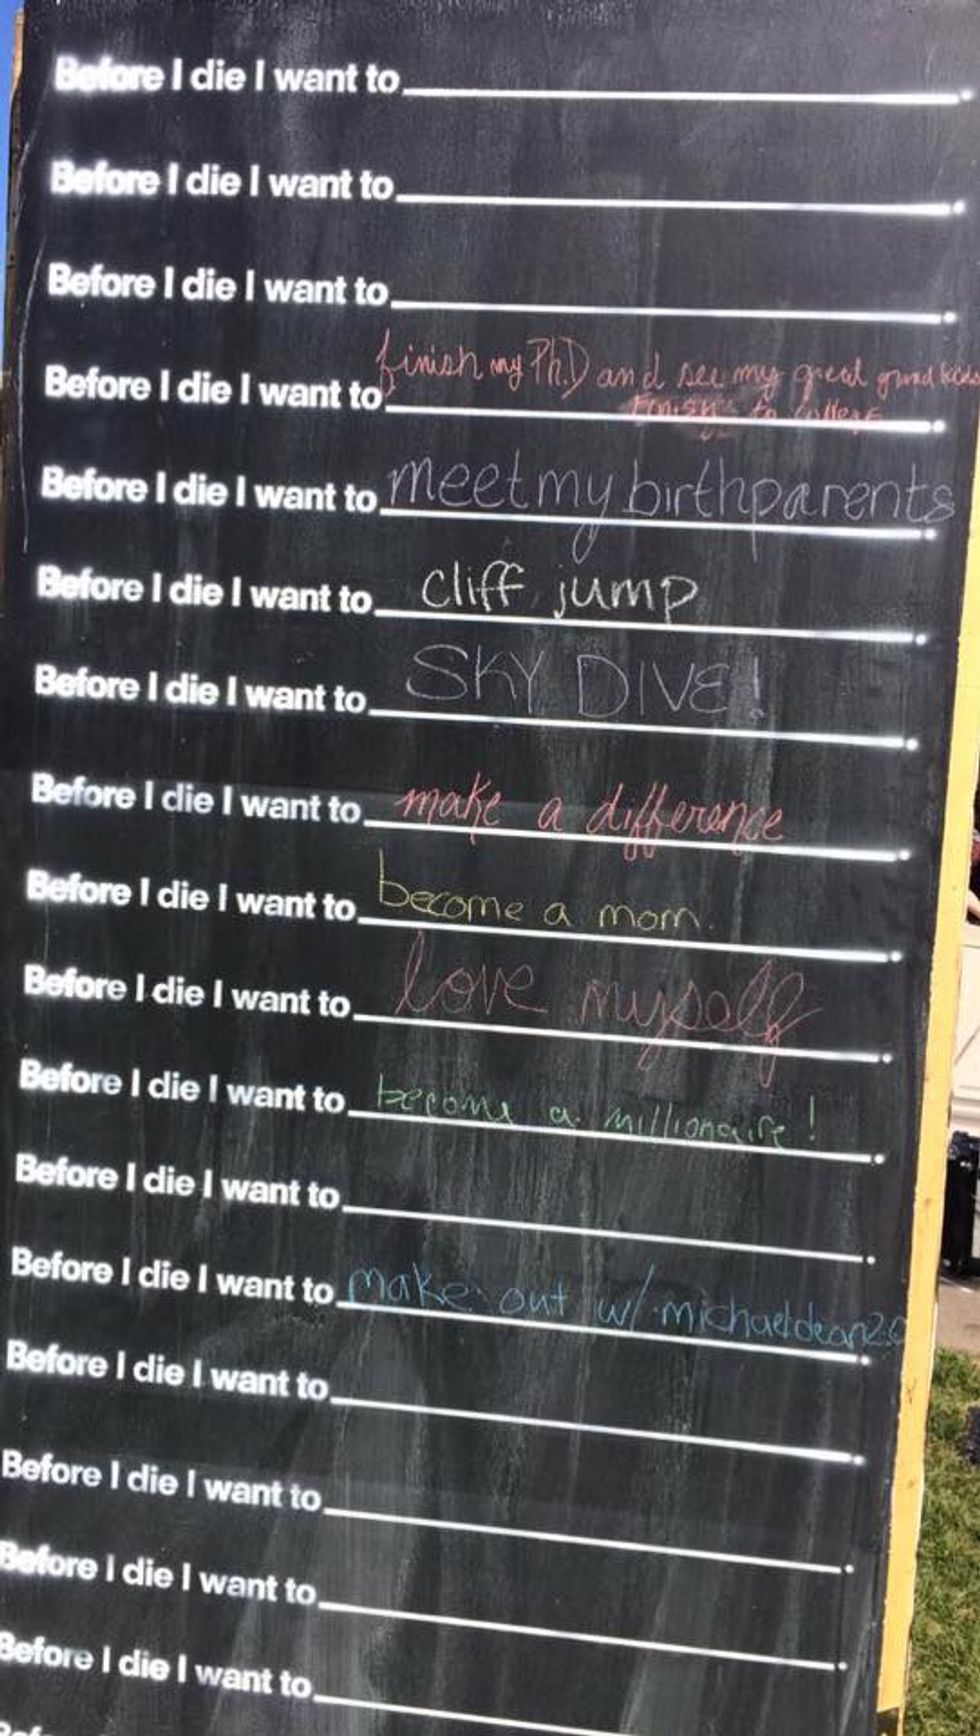 Before I die I want to
Before I die I want to
Before I die I want to
Before I die I want to finish my Ph.D and see my great grand kids
finish to college
Before I die I want to meet my birthparents
Before I die I want to cliff jump
Before I die I want to SKY DIVE!
Before I die I want to make a difference
Before I die I want to become a mom.
Before I die I want to love myself
Before I die I want to become a millionaire!
Before I die I want to
Before I die I want to make out w/ michaeldean20
Before I die I want to
Before I die I want to
Before I die I want to
Before I die I want to